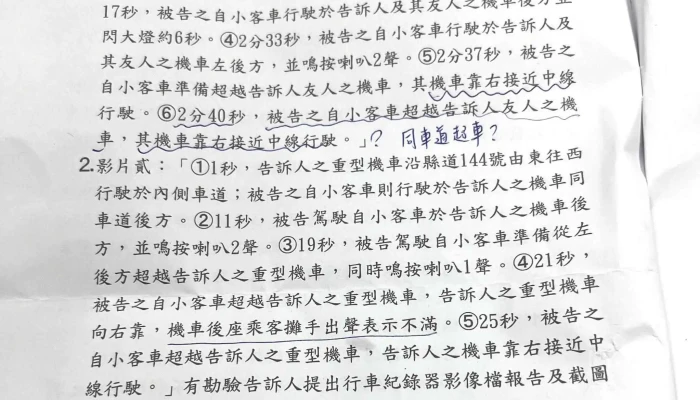 17秒，被告之自小客車行駛於告訴人及其友人之機車後方並
閃大燈約6秒。④2分33秒，被告之自小客車行駛於告訴人及
其友人之機車左後方，並鳴按喇叭2聲。⑤2分37秒，被告之
自小客車準備超越告訴人友人之機車，其機車靠右接近中線
行駛。⑥2分40秒，被告之自小客車超越告訴人友人之機
車，其機車靠右接近中線行駛。」? 同車道超車?
2.影片貳：「①1秒，告訴人之重型機車沿縣道144號由東往西
行駛於內側車道；被告之自小客車則行駛於告訴人之機車同
車道後方。②11秒，被告駕駛自小客車於告訴人之機車後
方，並鳴按喇叭2聲。③19秒，被告駕駛自小客車準備從左
後方超越告訴人之重型機車，同時鳴按喇叭1聲。④21秒，
被告之自小客車超越告訴人之重型機車，告訴人之重型機車
向右靠，機車後座乘客攤手出聲表示不滿。⑤25秒，被告之
自小客車超越告訴人之重型機車，告訴人之機車靠右接近中
線行駛。」有勘驗告訴人提出行車紀錄器影像檔報告及截圖